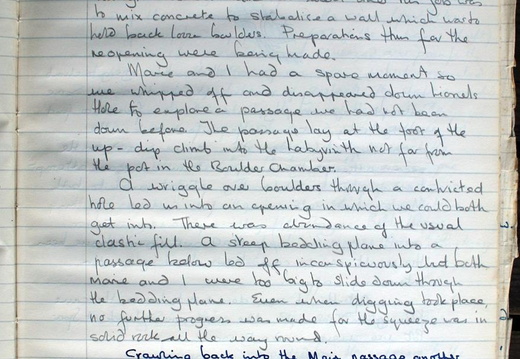 to mix concrete to stabalise a wall which was to
hold back loose boulders. Preparations thus for the
reopening were being made.
Marie and I had a spare moment so
we whipped off and disappeared down Lionels
Hole to explore a passage we had not been
down before. The passage lay at the foot of the
up-dip climb into the Labyrinth not far from
the pot in the Boulder Chamber.
A wriggle over boulders through a constricted
hole led us into an opening in which we could both
get into. There was abundance of the usual
clastic fill. A steep bedding plane into a
passage below led off inconspicuously but both
Marie and I were too big to slide down through
the bedding plane. Even when digging took place,
no further progress was made for the squeeze was in
solid rock all the way round.
Crawling back into the Main passage another